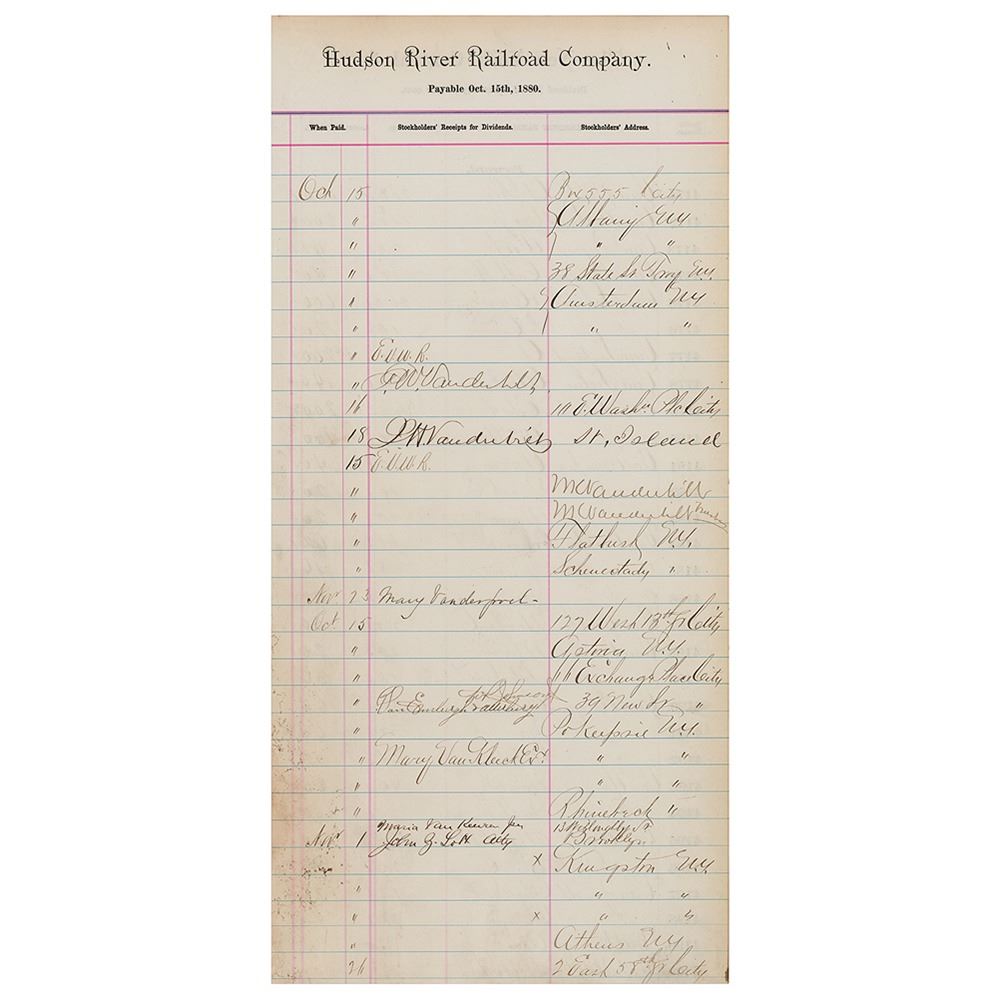 Hudson River Railroad Company.
Payable Oct. 15th, 1880.
When Paid. Stockholders' Receipts for Dividends. Stockholders' Address.
Oct 15 Box 555 City
" Albany N.Y.
" " "
" 38 State St Troy N.Y.
" Amsterdam N.Y.
" " "
" E.V.W.R.
" F.W. Vanderbilt
16 10 E. Wash. Plc City
18 J.H. Vanderbilt St. Island
15 E.V.W.R.
" M Vanderbilt
" M Vanderbilt
" Flatbush N.Y.
" Schenectady "
Nov 23 Mary Vanderpoel
Oct 15 127 West 13th St City
" Astoria N.Y.
" 16 Exchange Place City
" Van Emburgh & Atterbury 39 New St "
" Pokeepsie N.Y.
" Mary Van Kleeck Ex. " "
" " "
" Rhinebeck "
Maria Van Keuren per 13 Willoughby St
Nov 1 John Z. Lott Atty Brooklyn
x Kingston N.Y.
" " "
" x " "
" Athens N.Y.
26 2 East 58th St City